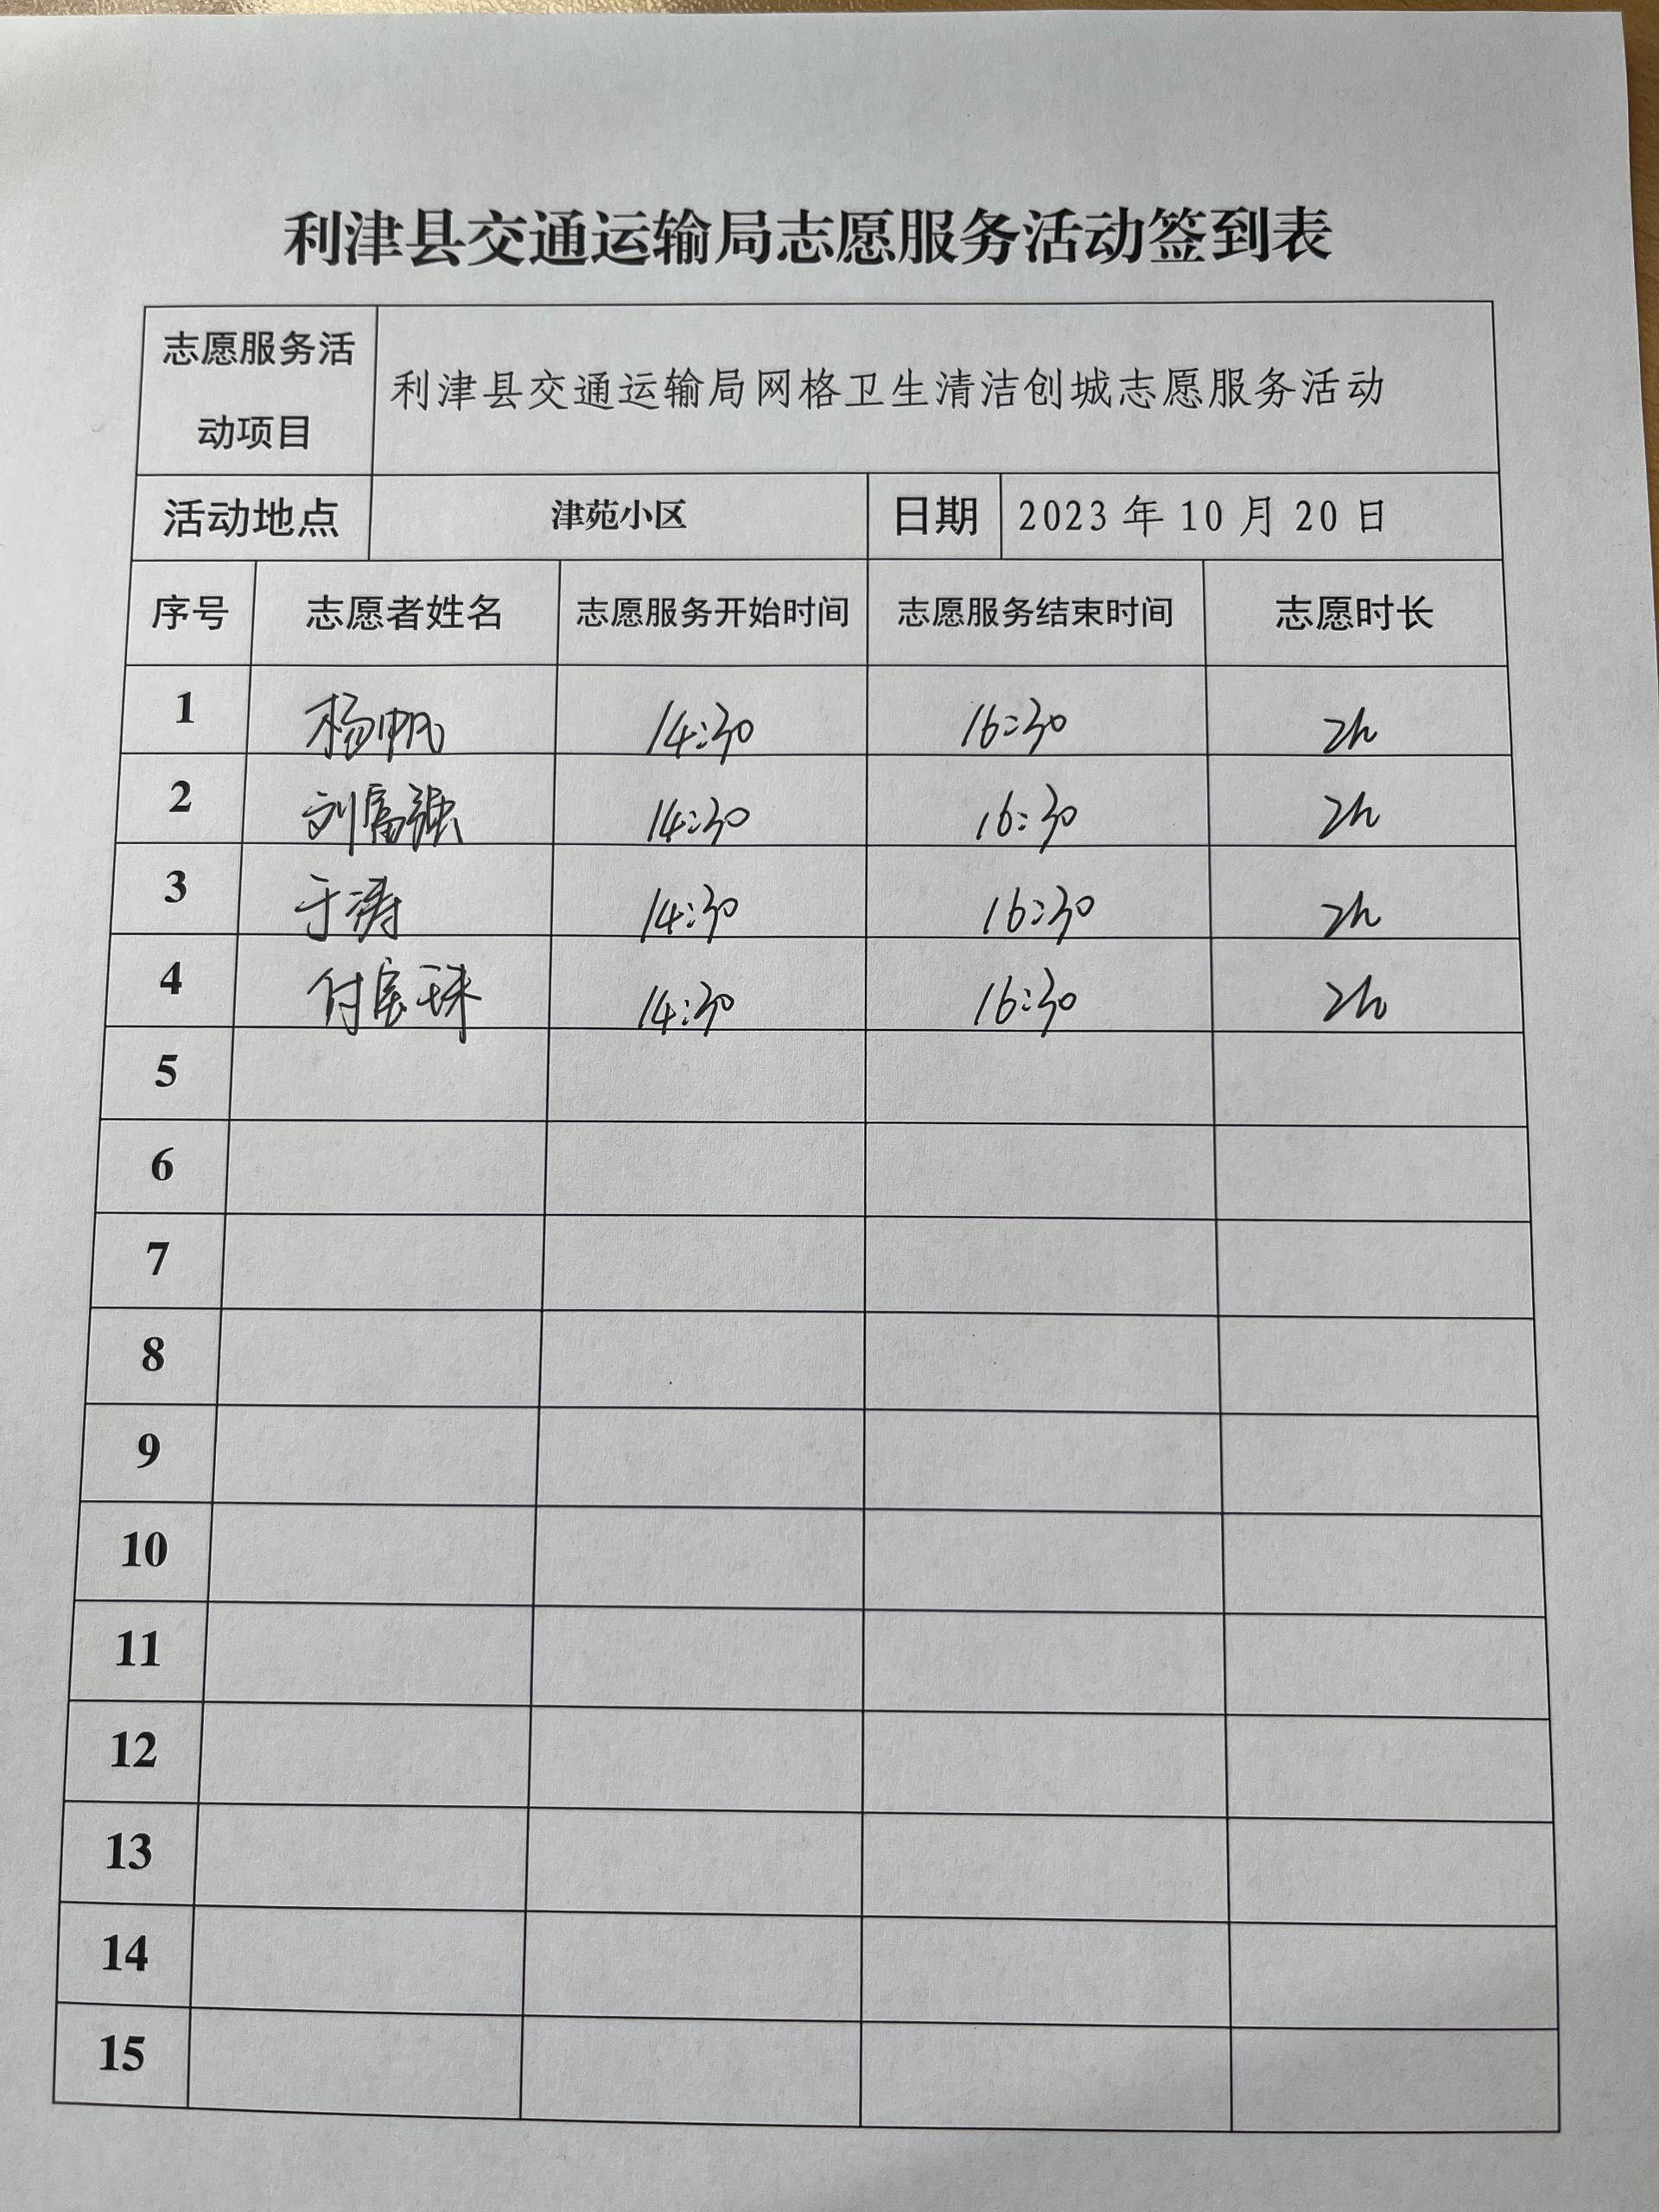 利津县交通运输局志愿服务活动签到表
志愿服务活
动项目
利津县交通运输局网格卫生清洁创城志愿服务活动
活动地点 津苑小区 日期 2023年10月20日
序号 志愿者姓名 志愿服务开始时间 志愿服务结束时间 志愿时长
1 杨帆 14:30 16:30 2h
2 刘富强 14:30 16:30 2h
3 于涛 14:30 16:30 2h
4 付宝珠 14:30 16:30 2h
5
6
7
8
9
10
11
12
13
14
15